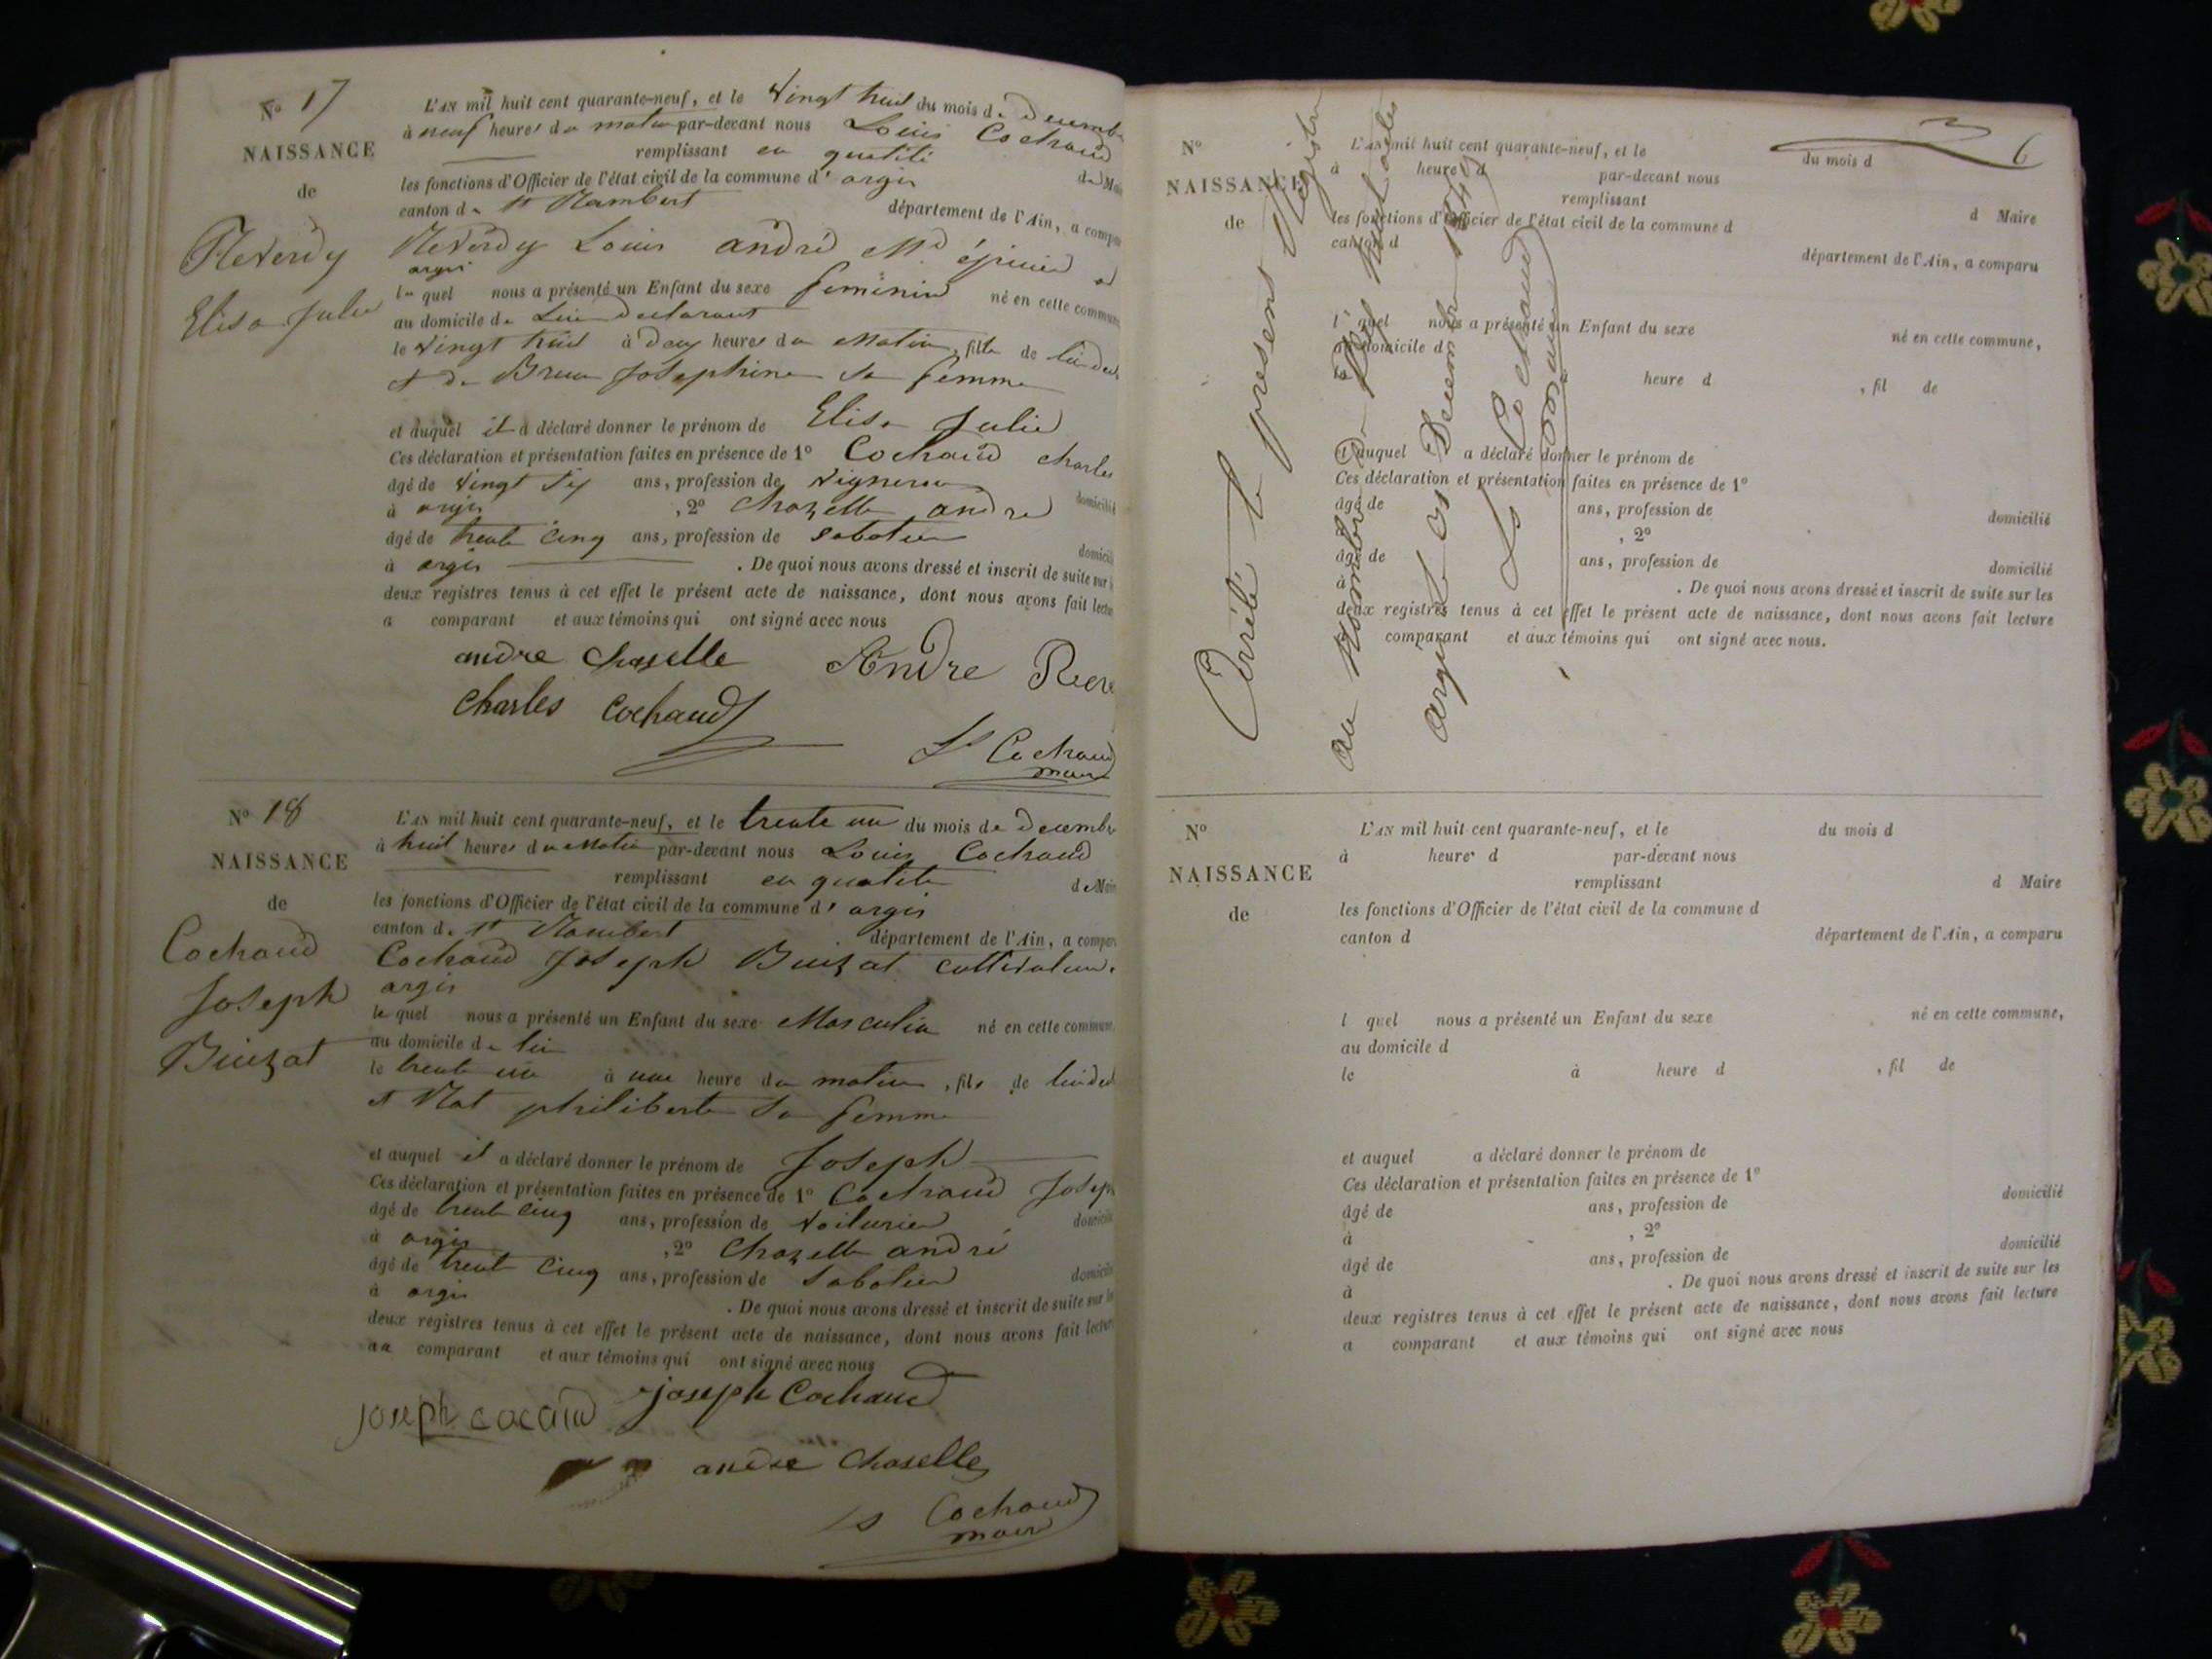 No 17
NAISSANCE
de
Reverdy
Elisa Julie
L'AN mil huit cent quarante-neuf, et le vingt huit du mois de Decembre
à neuf heures du matin par-devant nous Louis Cochaud
remplissant en qualité de Maire
les fonctions d'Officier de l'état civil de la commune d'argis
canton de St Rambert département de l'Ain, a comparu
Reverdy Louis andré Md épicier
argis
lequel nous a présenté un Enfant du sexe feminin né en cette commune
au domicile de lui declarant
le vingt huit à deux heures du matin, fille de lui
et de Brun Josephine sa femme
et auquel il a déclaré donner le prénom de Elisa Julie
Ces déclaration et présentation faites en présence de 1o Cochaud charles
âgé de vingt six ans, profession de vigneron domicilié
à argis, 2o Chazelle andre
âgé de trente cinq ans, profession de sabotier domicilié
à argis . De quoi nous avons dressé et inscrit de suite sur
deux registres tenus à cet effet le présent acte de naissance, dont nous avons fait lecture
a comparant et aux témoins qui ont signé avec nous
andre chaselle Andre Reve
charles cochaud
Ls Cochaud
maire
No 18
NAISSANCE
de
Cochaud
Joseph
Buizat
L'AN mil huit cent quarante-neuf, et le trente un du mois de Decembre
à huit heures du matin par-devant nous Louis Cochaud
remplissant en qualité de Maire
les fonctions d'Officier de l'état civil de la commune d'argis
canton de St Rambert département de l'Ain, a comparu
Cochaud Joseph Buizat cultivateur
argis
lequel nous a présenté un Enfant du sexe Masculin né en cette commune
au domicile de lui
le trente un à une heure du matin, fils de lui
et Nat philiberte sa femme
et auquel il a déclaré donner le prénom de Joseph
Ces déclaration et présentation faites en présence de 1o Cochaud Joseph
âgé de trente cinq ans, profession de voiturier domicilié
à argis, 2o Chazelle andré
âgé de trente cinq ans, profession de sabotier domicilié
à argis . De quoi nous avons dressé et inscrit de suite sur
deux registres tenus à cet effet le présent acte de naissance, dont nous avons fait lecture
au comparant et aux témoins qui ont signé avec nous
joseph cocaud joseph Cochaud
andre chaselle
Ls Cochaud
maire
6
No
NAISSANCE
de
L'AN mil huit cent quarante-neuf, et le du mois d
à heure d par-devant nous
remplissant d Maire
les fonctions d'Officier de l'état civil de la commune d
canton d
département de l'Ain, a comparu
l quel nous a présenté un Enfant du sexe né en cette commune,
au domicile d
le heure d , fil de
et auquel a déclaré donner le prénom de
Ces déclaration et présentation faites en présence de 1o
âgé de ans, profession de domicilié
, 2o
âgé de ans, profession de domicilié
à . De quoi nous avons dressé et inscrit de suite sur les
deux registres tenus à cet effet le présent acte de naissance, dont nous avons fait lecture
comparant et aux témoins qui ont signé avec nous.
Arrêté le present Registre
au Nombre de dix huit actes
argis le 31 Decembre 1849
Ls Cochaud
maire
No
NAISSANCE
de
L'AN mil huit cent quarante-neuf, et le du mois d
à heure d par-devant nous
remplissant d Maire
les fonctions d'Officier de l'état civil de la commune d
canton d département de l'Ain, a comparu
l quel nous a présenté un Enfant du sexe né en cette commune,
au domicile d
le à heure d , fil de
et auquel a déclaré donner le prénom de
Ces déclaration et présentation faites en présence de 1o
âgé de ans, profession de domicilié
à , 2o
âgé de ans, profession de domicilié
à . De quoi nous avons dressé et inscrit de suite sur les
deux registres tenus à cet effet le présent acte de naissance, dont nous avons fait lecture
a comparant et aux témoins qui ont signé avec nous